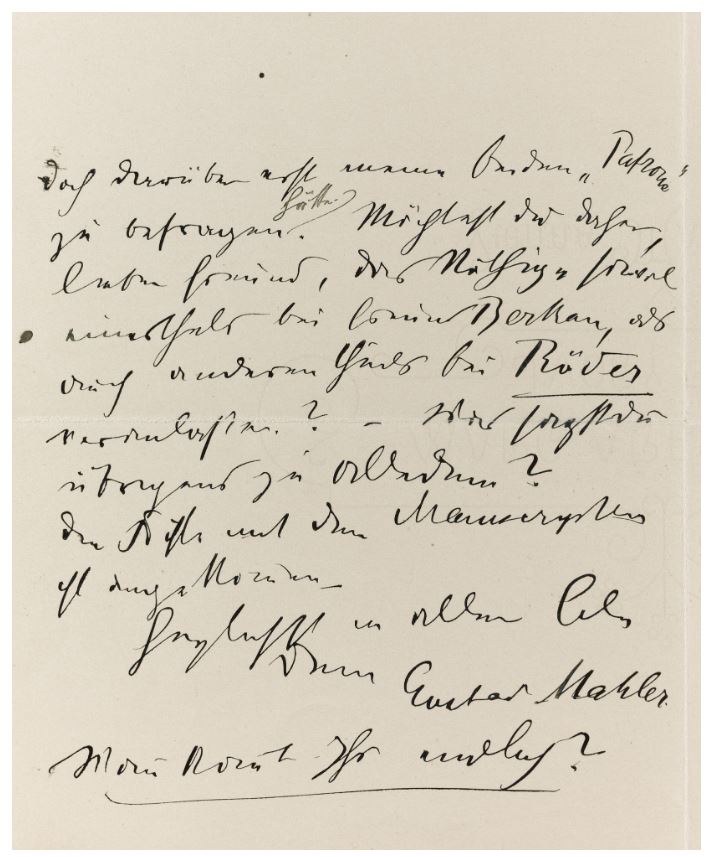 doch darüber erst meine beiden „Patrone“
zu befragen. hätte. Möchtest du daher,
lieber Freund, das Nöthige sowol
einestheils bei Freund Berkan, als
auch anderentheils bei Röder
veranlassen? – Was sagst du
übrigens zu alledem?
Die Kiste mit den Manuscripten
ist angekommen
Herzlichst in aller Eile
Dein Gustav Mahler.
Wann komt Ihr endlich?